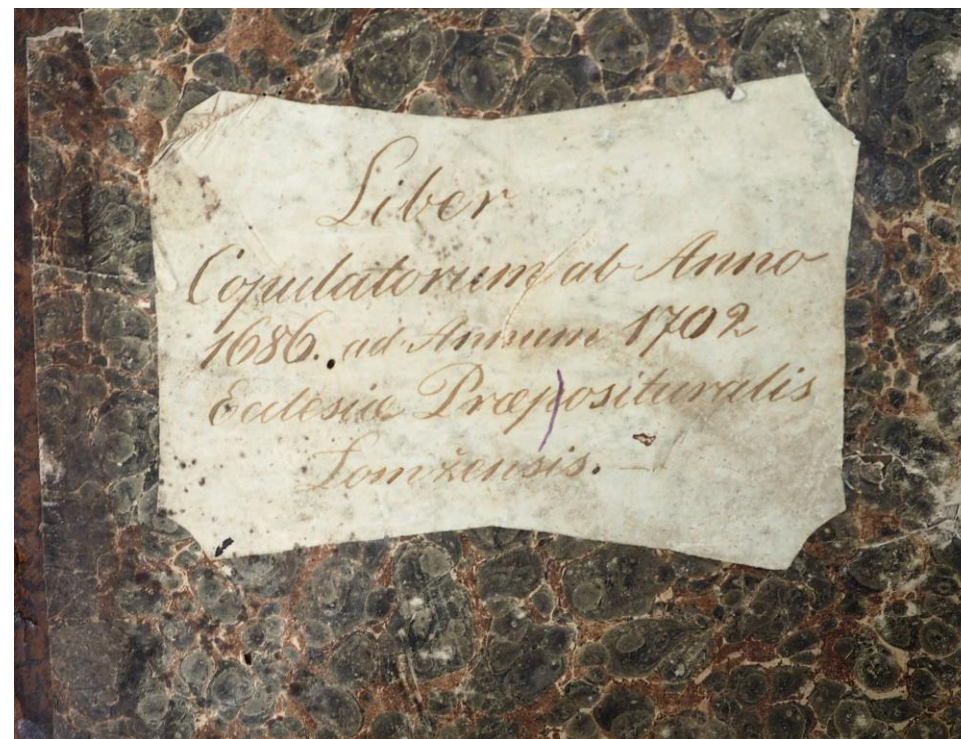 Liber
Copulatorum ab Anno
1686. ad Annum 1702
Ecclesiæ Præposituralis
Łomżensis. —